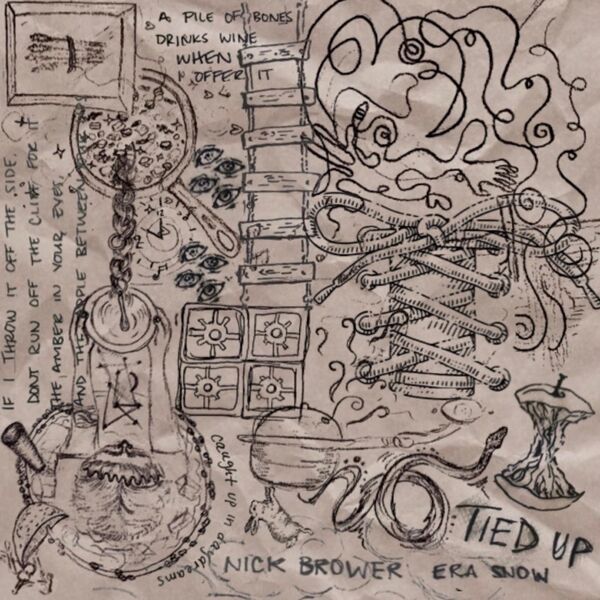 A PILE OF BONES
DRINKS WINE
WHEN
I OFFER IT
IF I THROW IT OFF THE SIDE
DONT RUN OFF THE CLIFF FOR IT
THE AMBER IN YOUR EYES
AND THE APPLE BETWEEN
12
caught up in daydreams
TIED UP
NICK BROWER ERA SNOW